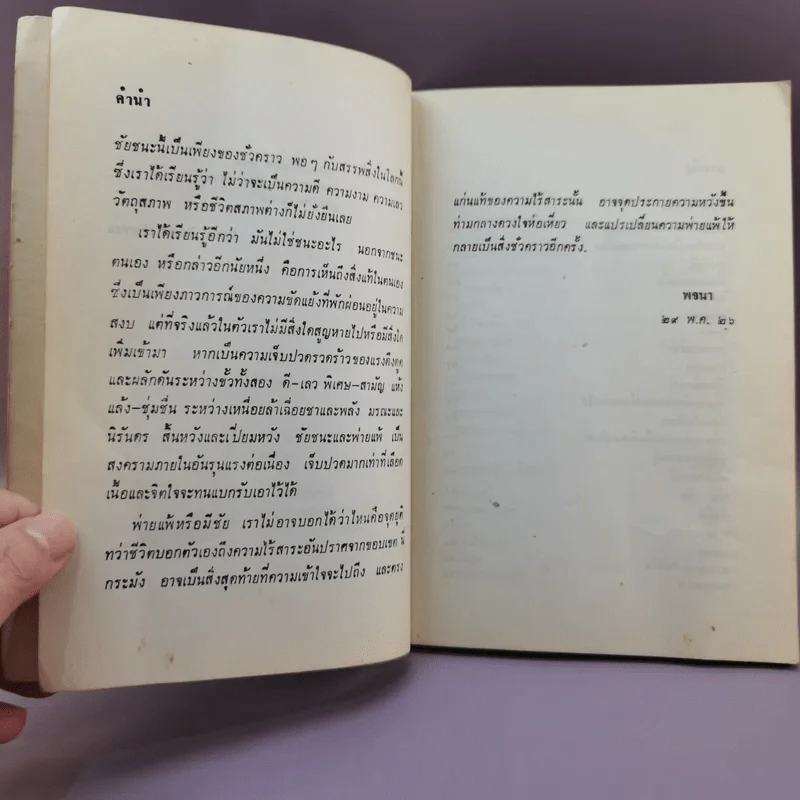 คำนำ
ชัยชนะนี้เป็นเพียงของชั่วคราว พอๆ กับสรรพสิ่งในโลกนี้
ซึ่งเราได้เรียนรู้ว่า ไม่ว่าจะเป็นความดี ความงาม ความเลว
วัตถุสภาพ หรือชีวิตสภาพต่างก็ไม่ยั่งยืนเลย
เราได้เรียนรู้อีกว่า มันไม่ใช่ชนะอะไร นอกจากชนะ
ตนเอง หรือกล่าวอีกนัยหนึ่ง คือการเห็นถึงสิ่งแท้ในตนเอง
ซึ่งเป็นเพียงภาวการณ์ของความขัดแย้งที่พักผ่อนอยู่ในความ
สงบ แต่ที่จริงแล้วในตัวเราไม่มีสิ่งใดสูญหายไปหรือมีสิ่งใด
เพิ่มเข้ามา หากเป็นความเจ็บปวดรวดร้าวของแรงดึงดูด
และผลักดันระหว่างขั้วทั้งสอง ดี-เลว พิเศษ-สามัญ แห้ง
แล้ง-ชุ่มชื่น ระหว่างเหนื่อยล้าเฉื่อยชาและพลัง มรณะและ
นิรันดร สิ้นหวังและเปี่ยมหวัง ชัยชนะและพ่ายแพ้ เป็น
สงครามภายในอันรุนแรงต่อเนื่อง เจ็บปวดมากเท่าที่เลือด
เนื้อและจิตใจจะทนแบกรับเอาไว้ได้
พ่ายแพ้หรือมีชัย เราไม่อาจบอกได้ว่าไหนคือจุดยุติ
ทว่าชีวิตบอกตัวเองถึงความไร้สาระอันปราศจากขอบเขต นี่
กระมัง อาจเป็นสิ่งสุดท้ายที่ความเข้าใจจะไปถึง และตรง
แก่นแท้ของความไร้สาระนั้น อาจจุดประกายความหวังขึ้น
ท่ามกลางดวงใจห่อเหี่ยว และแปรเปลี่ยนความพ่ายแพ้ให้
กลายเป็นสิ่งชั่วคราวอีกครั้ง.
พจนา
๒๙ พ.ค. ๒๖